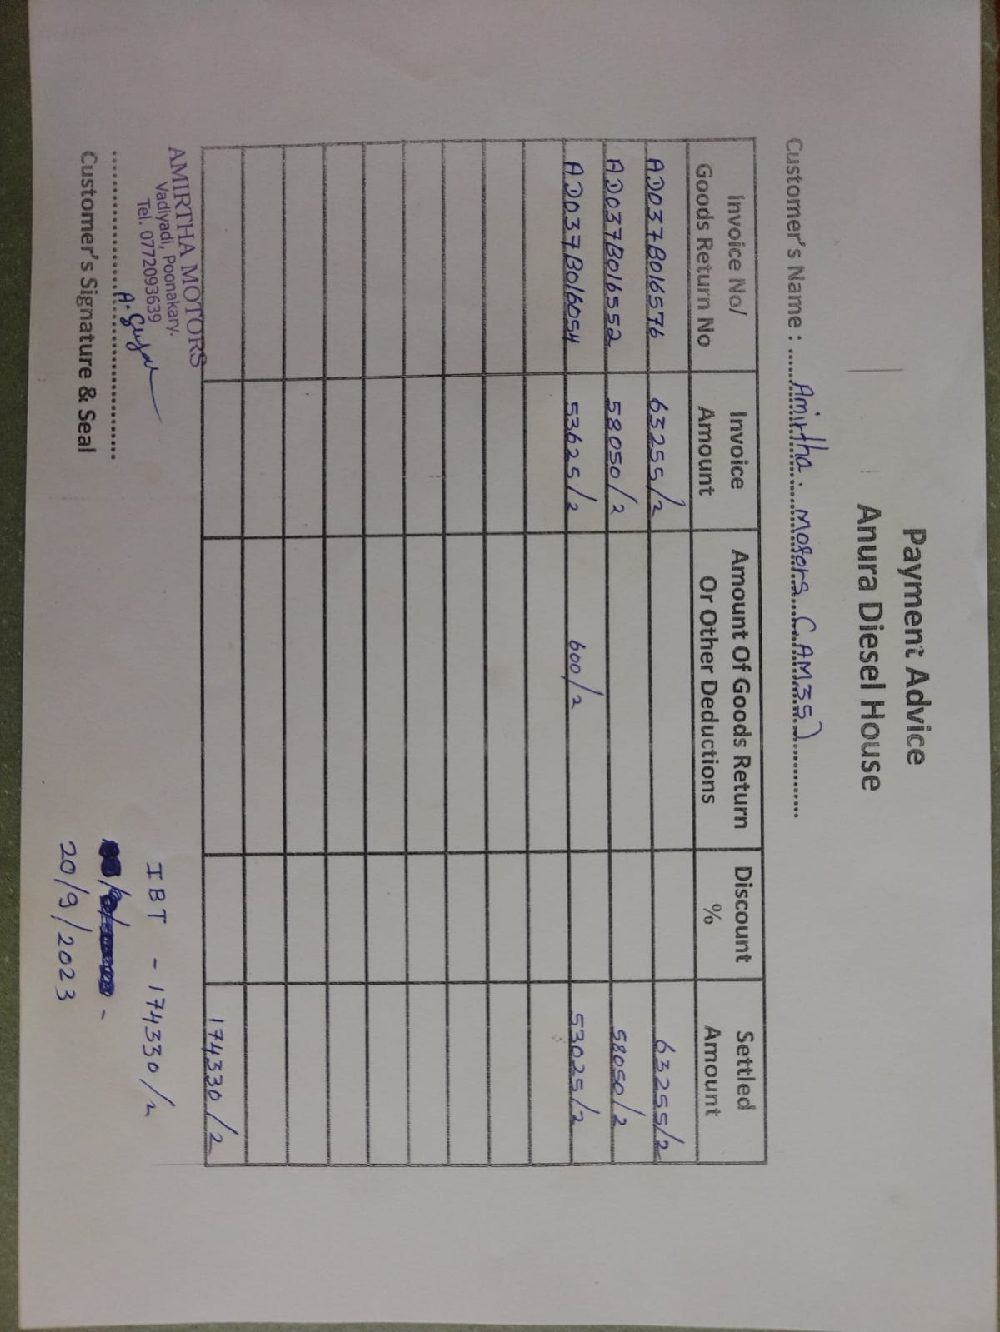 Payment Advice
Anura Diesel House
Customer's Name : Amirtha. Motors (AM35)
Invoice No/ Goods Return No | Invoice Amount | Amount Of Goods Return Or Other Deductions | Discount % | Settled Amount
AD037B016576 | 63255/2 | | | 63255/2
AD037B016552 | 58050/2 | | | 58050/2
AD037B016054 | 53625/2 | 600/2 | | 53025/2
174330/2
AMIRTHA MOTORS
Vadiyadi, Poonakary.
Tel. 0772093639
Customer's Signature & Seal
IBT - 174330/2
20/9/2023